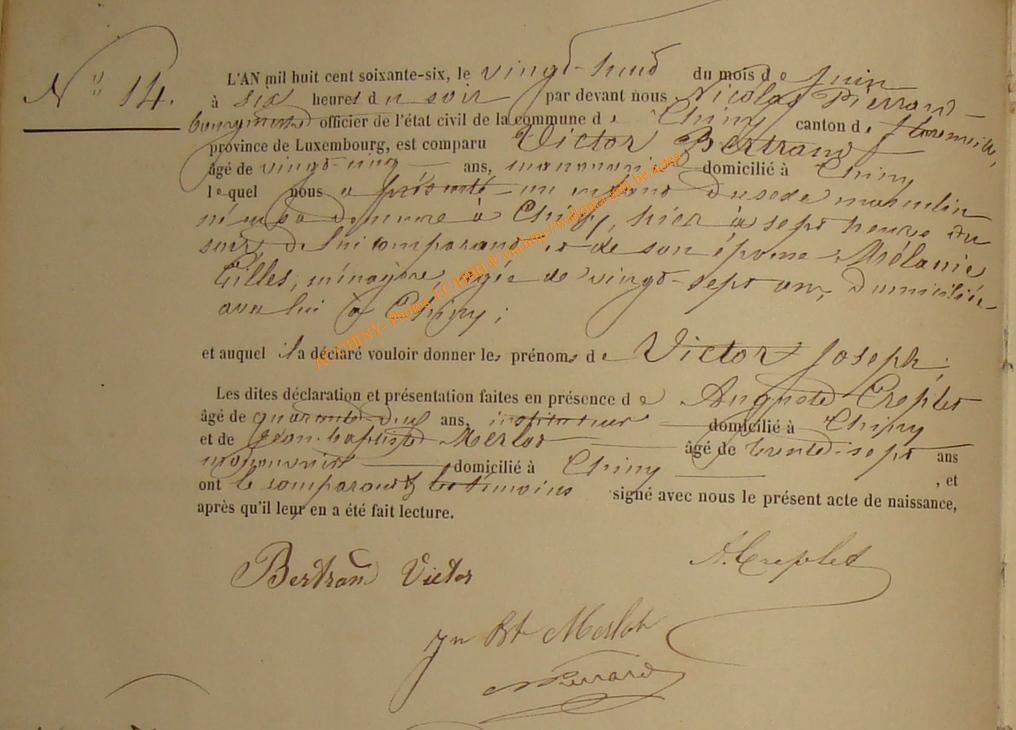 N° 14.
L'AN mil huit cent soixante-six, le vingt-huit du mois de Juin
à six heures du soir par devant nous Nicolas Pierrard
bourgmestre officier de l'état civil de la commune de Chiny canton de Florenville,
province de Luxembourg, est comparu Victor Bertrand
âgé de vingt-cinq ans, manouvrier domicilié à Chiny
lequel nous a présenté un enfant du sexe masculin
né en sa demeure à Chiny, hier à sept heures du
soir, de lui comparant et de son épouse Mélanie
Gilles, ménagère, âgée de vingt-sept ans, domiciliée
avec lui à Chiny;
et auquel il a déclaré vouloir donner les prénoms de Victor Joseph;
Les dites déclaration et présentation faites en présence de Auguste Creplet
âgé de quarante-deux ans, instituteur domicilié à Chiny
et de Jean-Baptiste Merlot âgé de trente-sept ans
manouvrier domicilié à Chiny, et
ont le comparant & les témoins signé avec nous le présent acte de naissance,
après qu'il leur en a été fait lecture.
Bertrand Victor
A. Creplet
Jn Bt Merlot
NPierrard